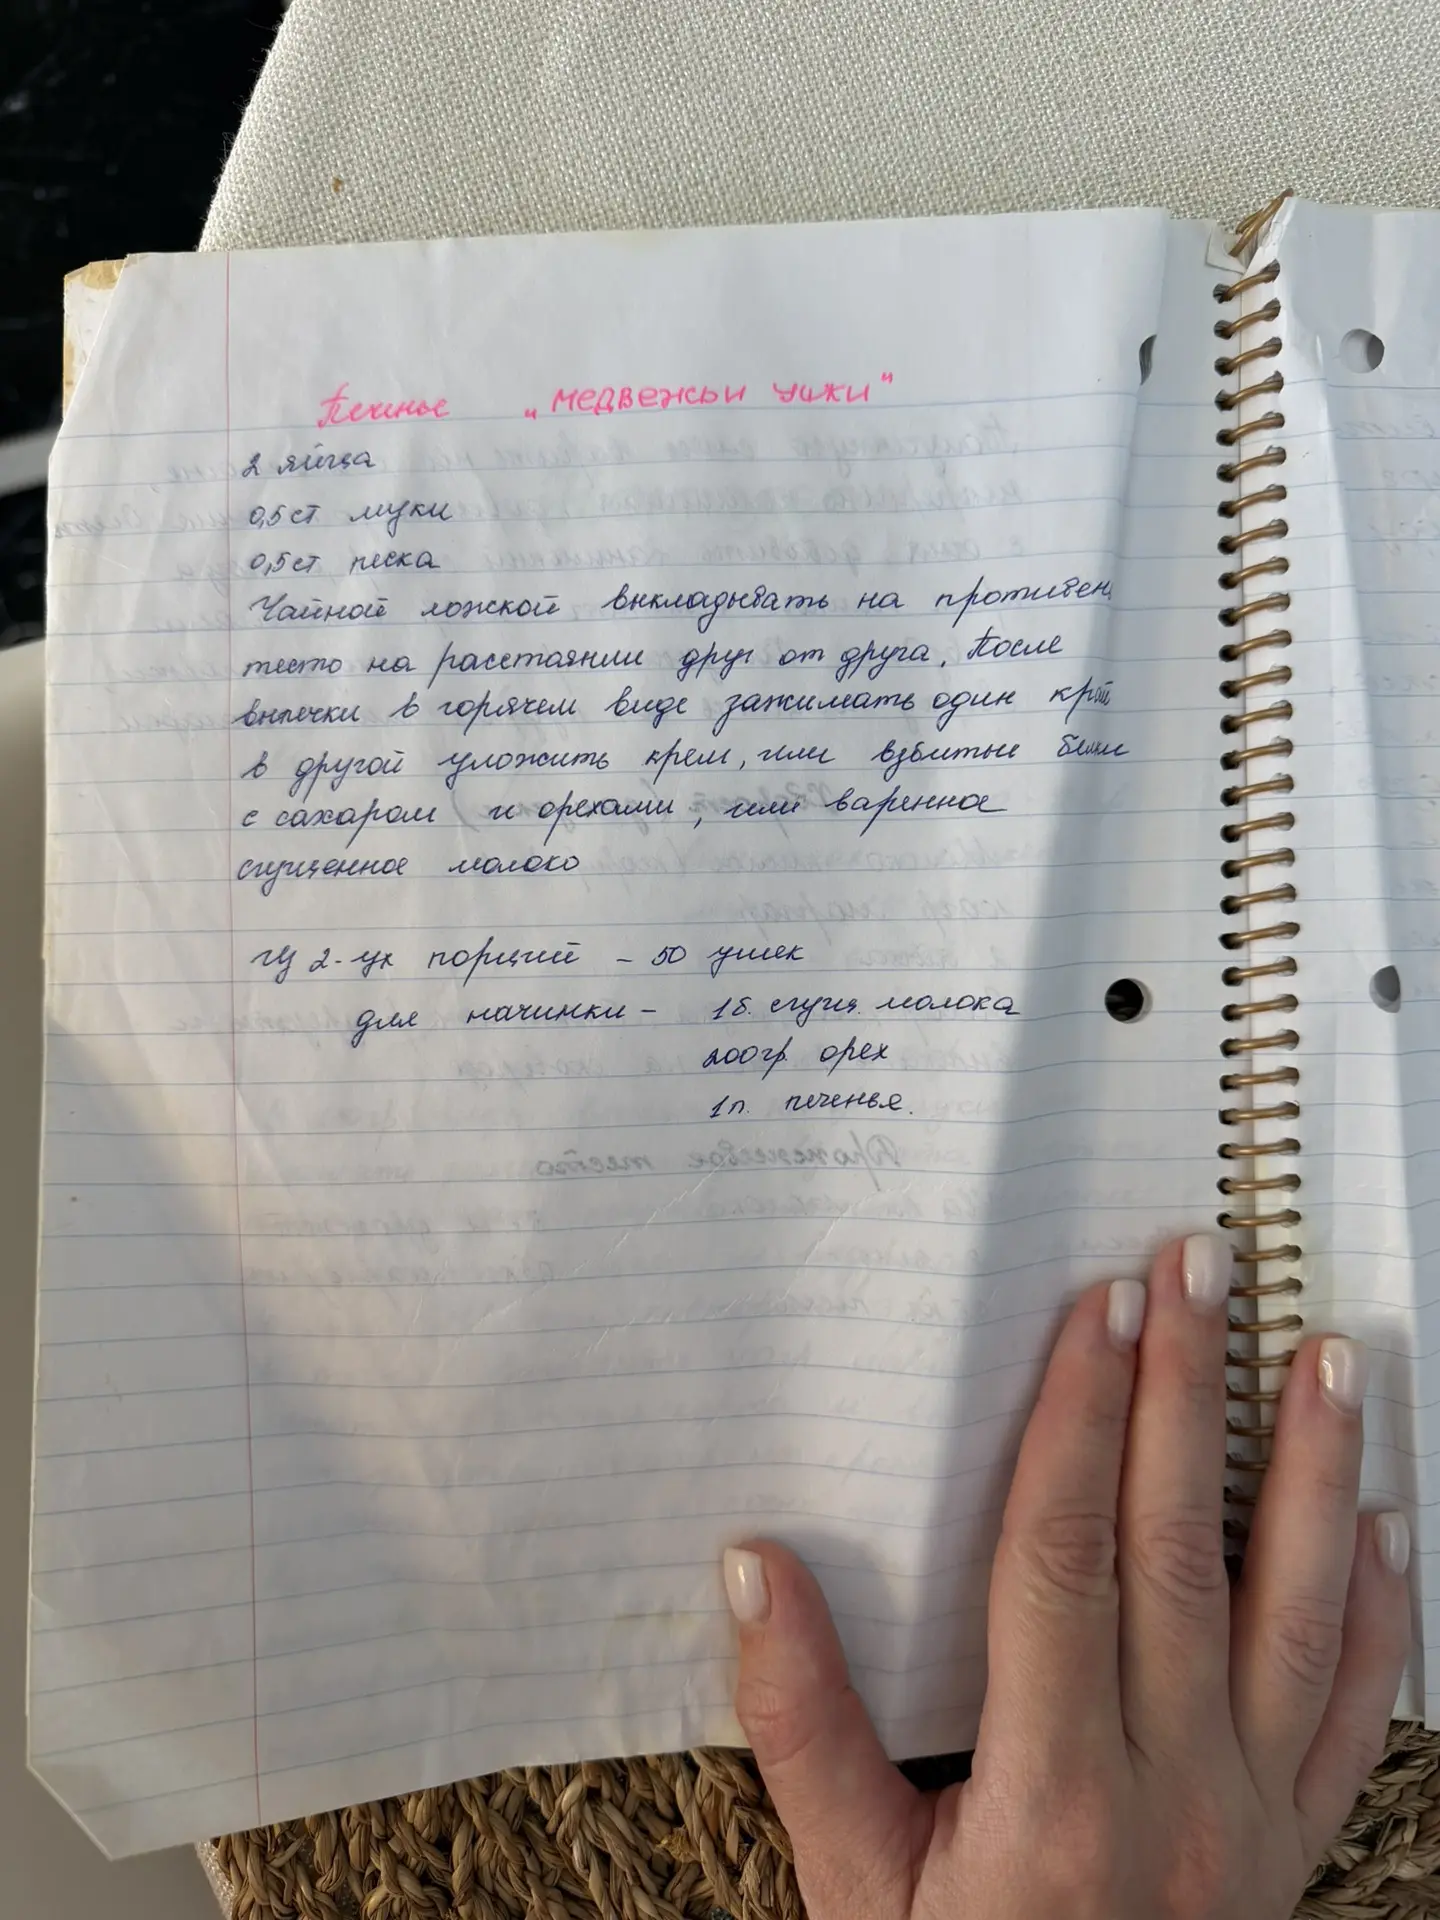 Печенье „медвежьи ушки"
2 яйца
0,5 ст муки
0,5 ст песка
Чайной ложкой выкладывать на противень
тесто на расстоянии друг от друга. После
выпечки в горячем виде зажимать один край
в другой уложить крем, или взбитые белки
с сахаром и орехами, или варенное
сгущенное молоко
Из 2-ух порций – 50 ушек
для начинки – 1б. сгущ. молока
200гр. орех
1п. печенья.